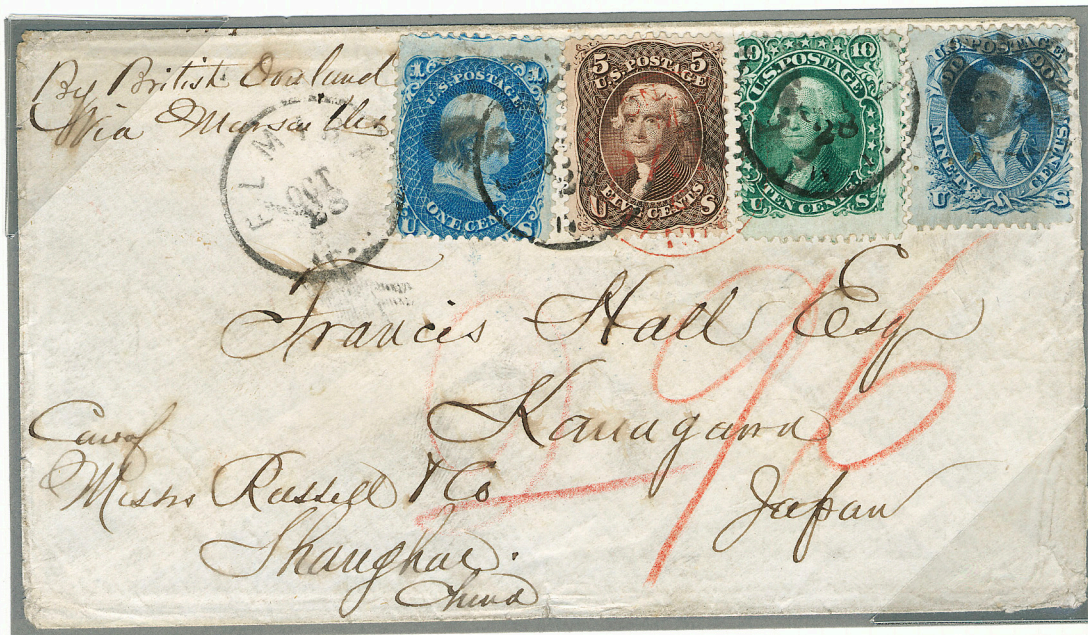 By British Overland
Via Marsailles
ELMIRA
OCT
28
1 U.S. POSTAGE 1
ONE CENT
U S
5 U.S. POSTAGE 5
FIVE CENTS
U S
10 U.S. POSTAGE 10
TEN CENTS
U S
28
U.S. POSTAGE
90 90
NINETY CENTS
U S
Francis Hall Esq
Kanagawa
Japan
Care of
Messrs Russell & Co
Shanghai.
China
2 96